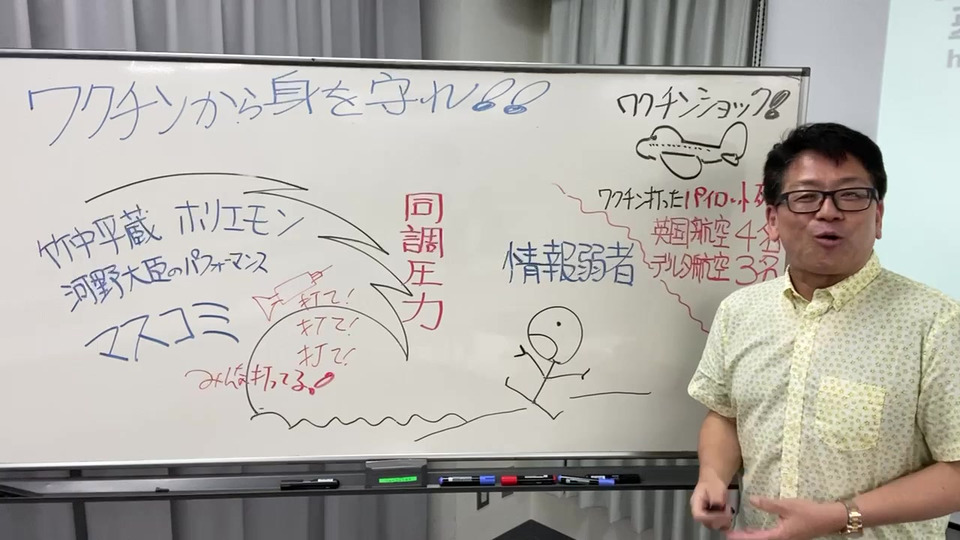 ワクチンから身を守れ!!
ワクチンショック!
ワクチン打ったパイロット
英国航空 4名
デルタ航空 3名
竹中平蔵 ホリエモン
河野大臣のパフォーマンス
マスコミ
同調圧力
情報弱者
打て!
打て!
打て!
みんな打ってる!